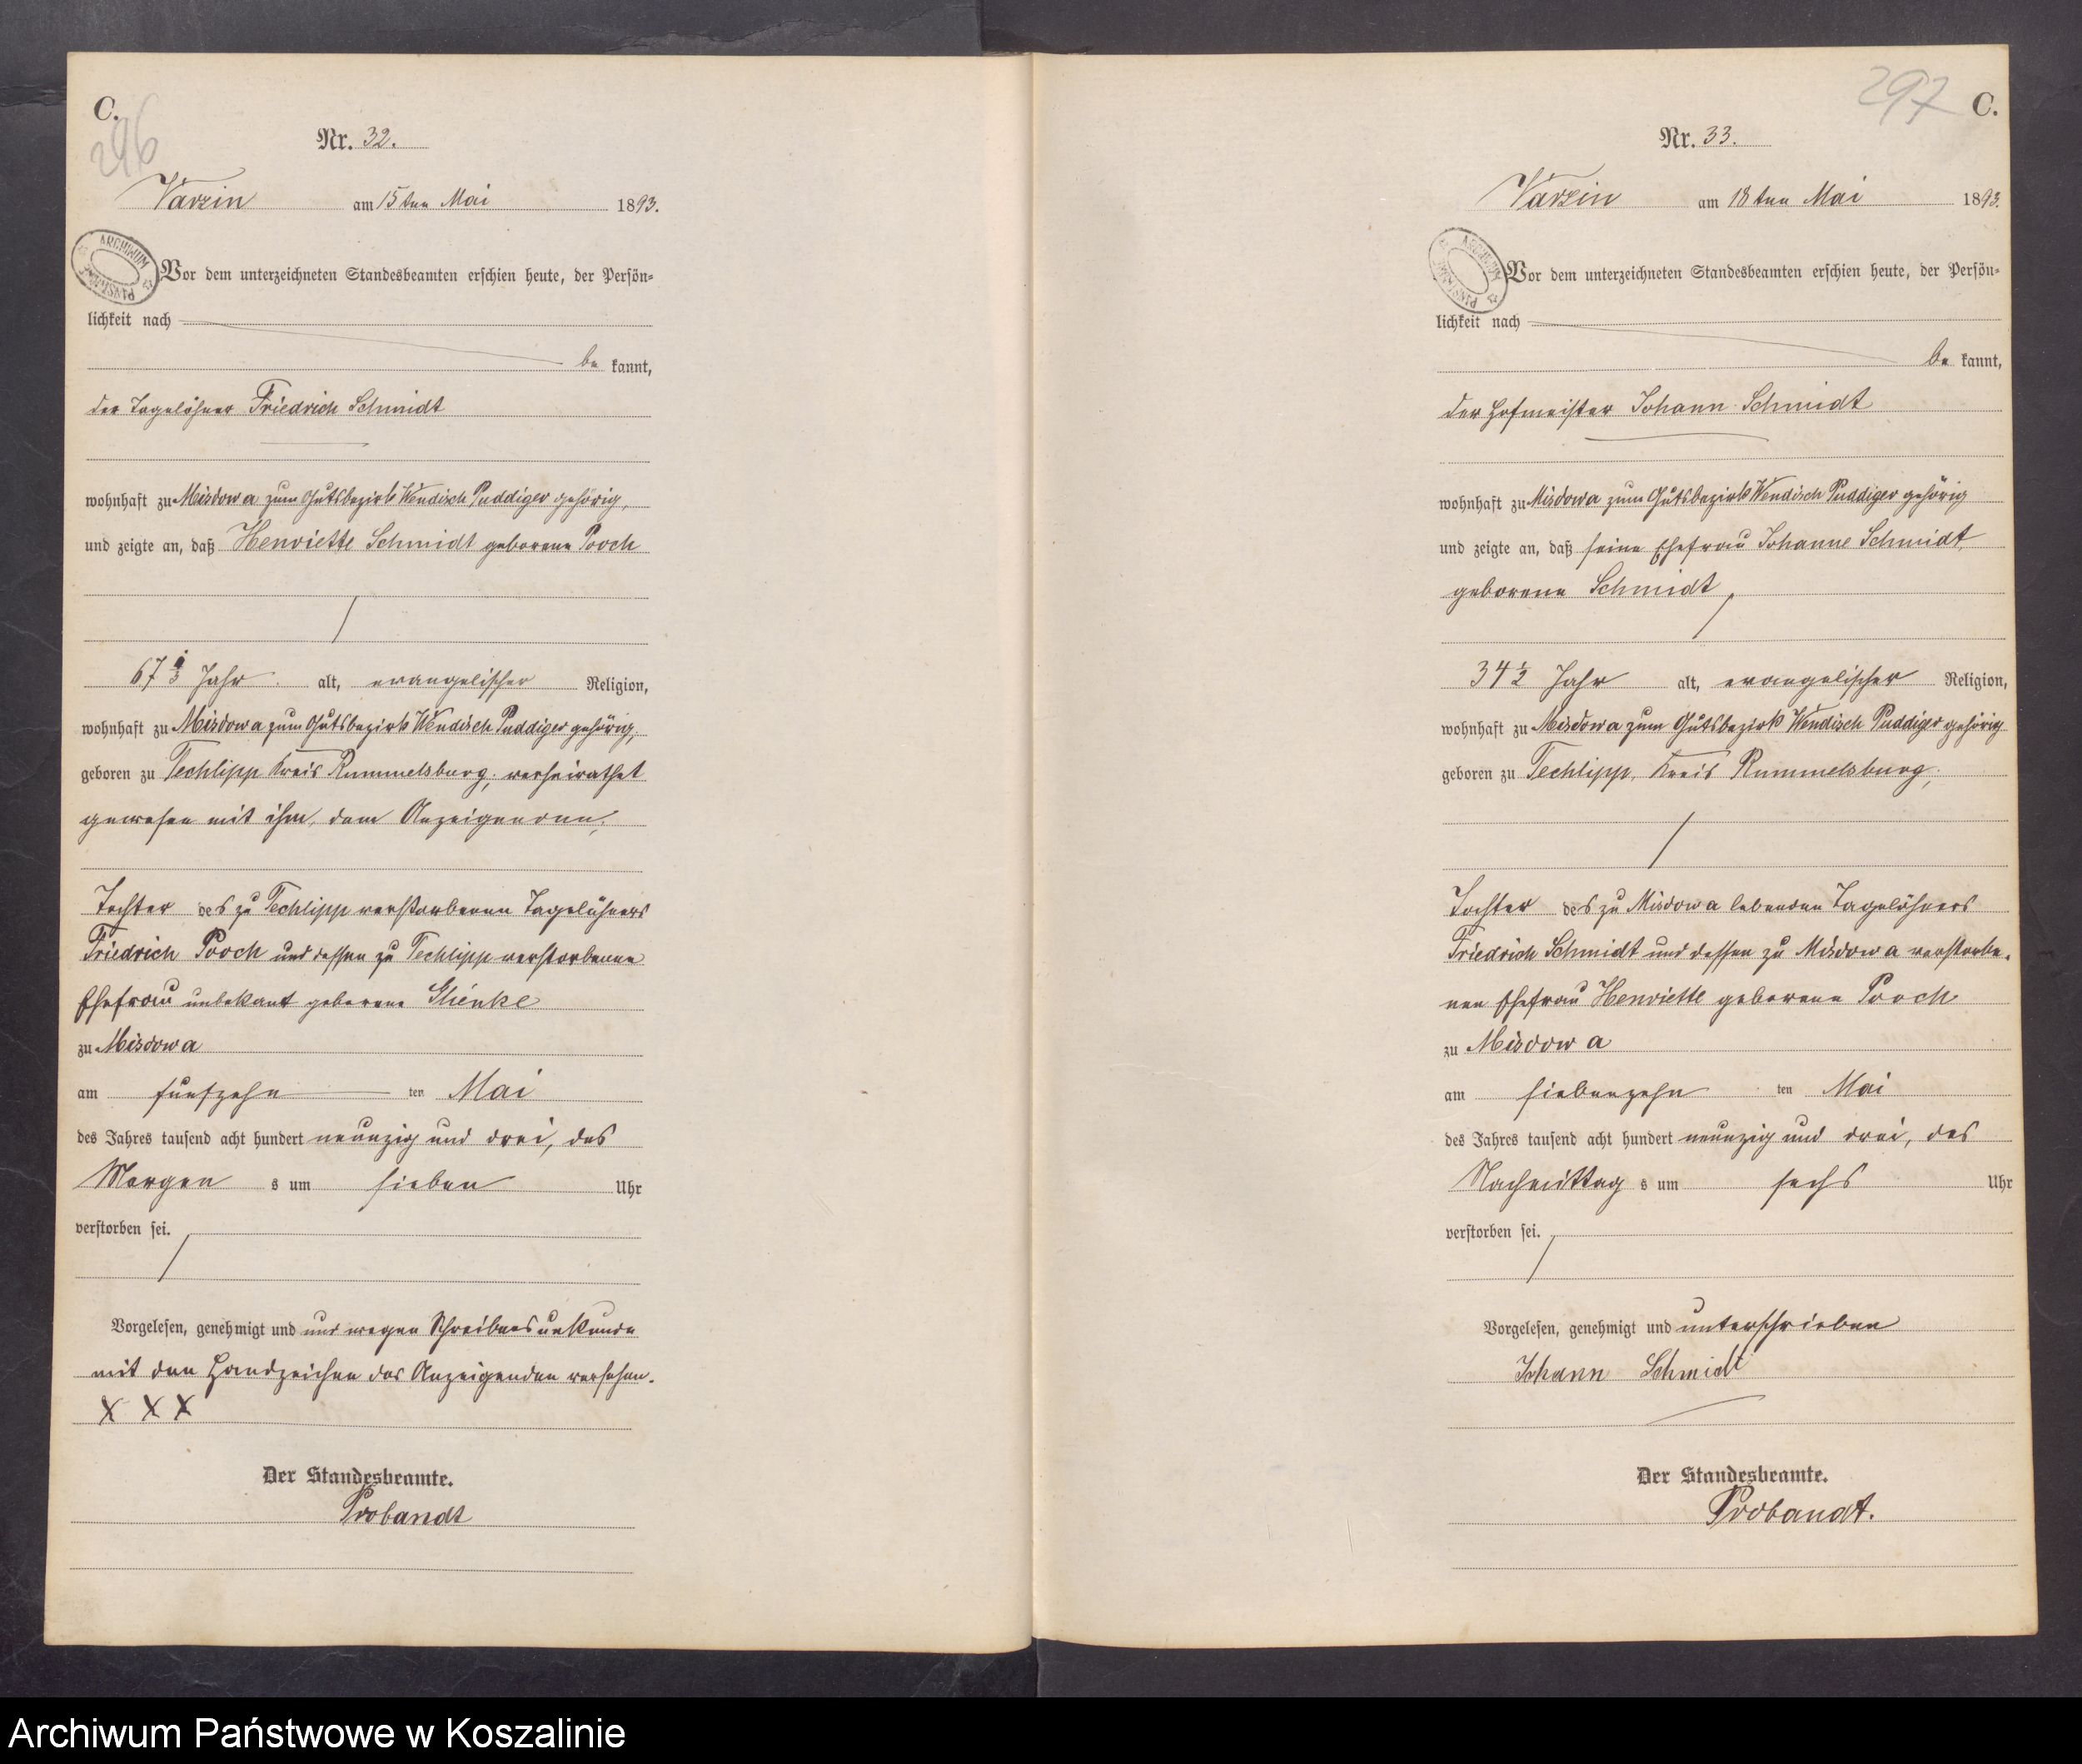 C.
296
Nr. 32.
Varzin am 15ten Mai 1893.
ARCHIWUM PAŃSTWOWE
Vor dem unterzeichneten Standesbeamten erschien heute, der Persön-
lichkeit nach
be kannt,
der Tagelöhner Friedrich Schmidt
wohnhaft zu Misdowa zum Gutsbezirk Wendisch Puddiger gehörig,
und zeigte an, daß Henriette Schmidt geborene Pooch
67 Jahr alt, evangelischer Religion,
wohnhaft zu Misdowa zum Gutsbezirk Wendisch Puddiger gehörig,
geboren zu Techlipp Kreis Rummelsburg, verheirathet
gewesen mit ihm, dem Anzeigenden,
Tochter des zu Techlipp verstorbenen Tagelöhners
Friedrich Pooch und dessen zu Techlipp verstorbenen
Ehefrau unbekant geborene Glienke
zu Misdowa
am fünfzehn ten Mai
des Jahres tausend acht hundert neunzig und drei, des
Morgen s um sieben Uhr
verstorben sei.
Vorgelesen, genehmigt und und wegen Schreibensunkunde
mit den Handzeichen des Anzeigenden versehen.
X X X
Der Standesbeamte.
Probandt
297
C.
Nr. 33.
Varzin am 18ten Mai 1893.
ARCHIWUM PAŃSTWOWE
Vor dem unterzeichneten Standesbeamten erschien heute, der Persön-
lichkeit nach
be kannt,
der Hofmeister Johann Schmidt
wohnhaft zu Misdowa zum Gutsbezirk Wendisch Puddiger gehörig
und zeigte an, daß seine Ehefrau Johanne Schmidt,
geborene Schmidt,
34 1/2 Jahr alt, evangelischer Religion,
wohnhaft zu Misdowa zum Gutsbezirk Wendisch Puddiger gehörig
geboren zu Techlipp, Kreis Rummelsburg,
Tochter des zu Misdowa lebenden Tagelöhners
Friedrich Schmidt und dessen zu Misdowa verstorbe-
nen Ehefrau Henriette geborene Pooch
zu Misdowa
am siebenzehn ten Mai
des Jahres tausend acht hundert neunzig und drei, des
Nachmittag s um sechs Uhr
verstorben sei.
Vorgelesen, genehmigt und unterschrieben
Johann Schmidt
Der Standesbeamte.
Probandt.
Archiwum Państwowe w Koszalinie